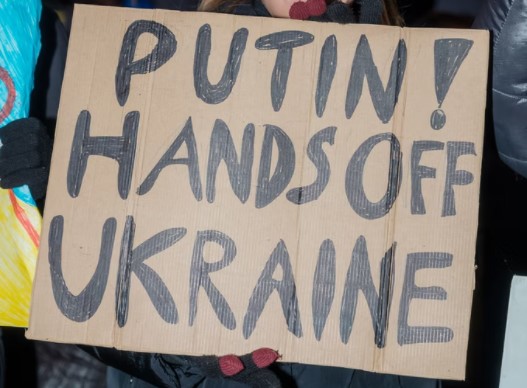 PUTIN!
HANDS OFF
UKRAINE